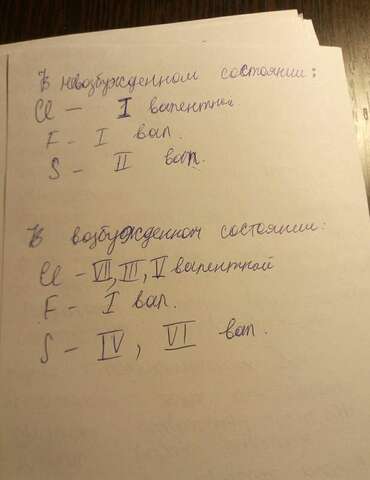 В невозбужденном состоянии:
Cl – I валентной
F – I вал.
S – II вал.
В возбужденном состоянии:
Cl – VII, III, V валентной
F – I вал.
S – IV, VI вал.